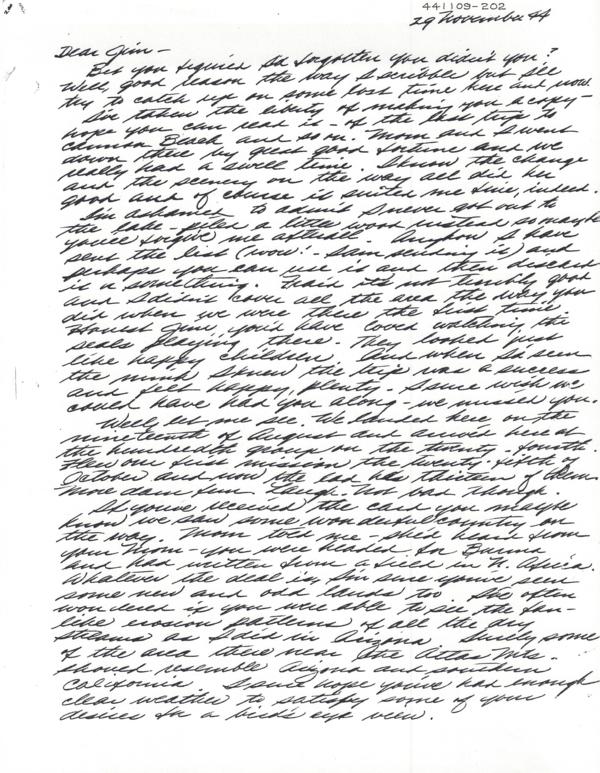 441109-202
29 November 44
Dear Jim -
Bet you figured I'd forgotten you didn't you?
Well, good reason the way I scribble but I'll
try to catch up on some lost time here and now.
I've taken the liberty of making you a copy -
hope you can read it - of the last trip to
Cannon Beach and so on. Mom and I went
down there by great good fortune and we
really had a swell time. I know the change
and the scenery on the way all did her
good and of course it suited me fine, indeed.
I'm ashamed to admit I never got out to
the lake - piled a little wood instead so maybe
you'll forgive me afterall. Anyhow I have
sent the list (wow! - I am sending it) and
perhaps you can use it and then discard
it or something. 'Fraid it's not terribly good
and I didn't cover all the area the way you
did when we were there the first time.
Honest Jim, you'd have loved watching the
seals playing there. They looked just
like happy children. And when I'd seen
the mink I knew the trip was a success
and felt happy, plenty. Sure wish we
could have had you along - we missed you.
Well, let me see. We landed here on the
nineteenth of August and arrived here at
the hundredth group on the twenty-fourth.
Flew our first mission the twenty-fifth of
October and now the lad has thirteen of them.
More darn fun. Laugh. Not bad though.
If you've received the card you maybe
know we saw some wonderful country on
the way. Mom told me - she'd heard from
your Mom - you were headed for Burma
and had written from a field in N. Africa.
Whatever the deal is, I'm sure you've seen
some new and odd lands too. I've often
wondered if you were able to see the fan-
like erosion patterns of all the dry
streams as I did in Arizona. Surely some
of the area there near the Atlas Mts.
should resemble Arizona and southern
California. I sure hope you've had enough
clear weather to satisfy some of your
desires for a bird's eye view.